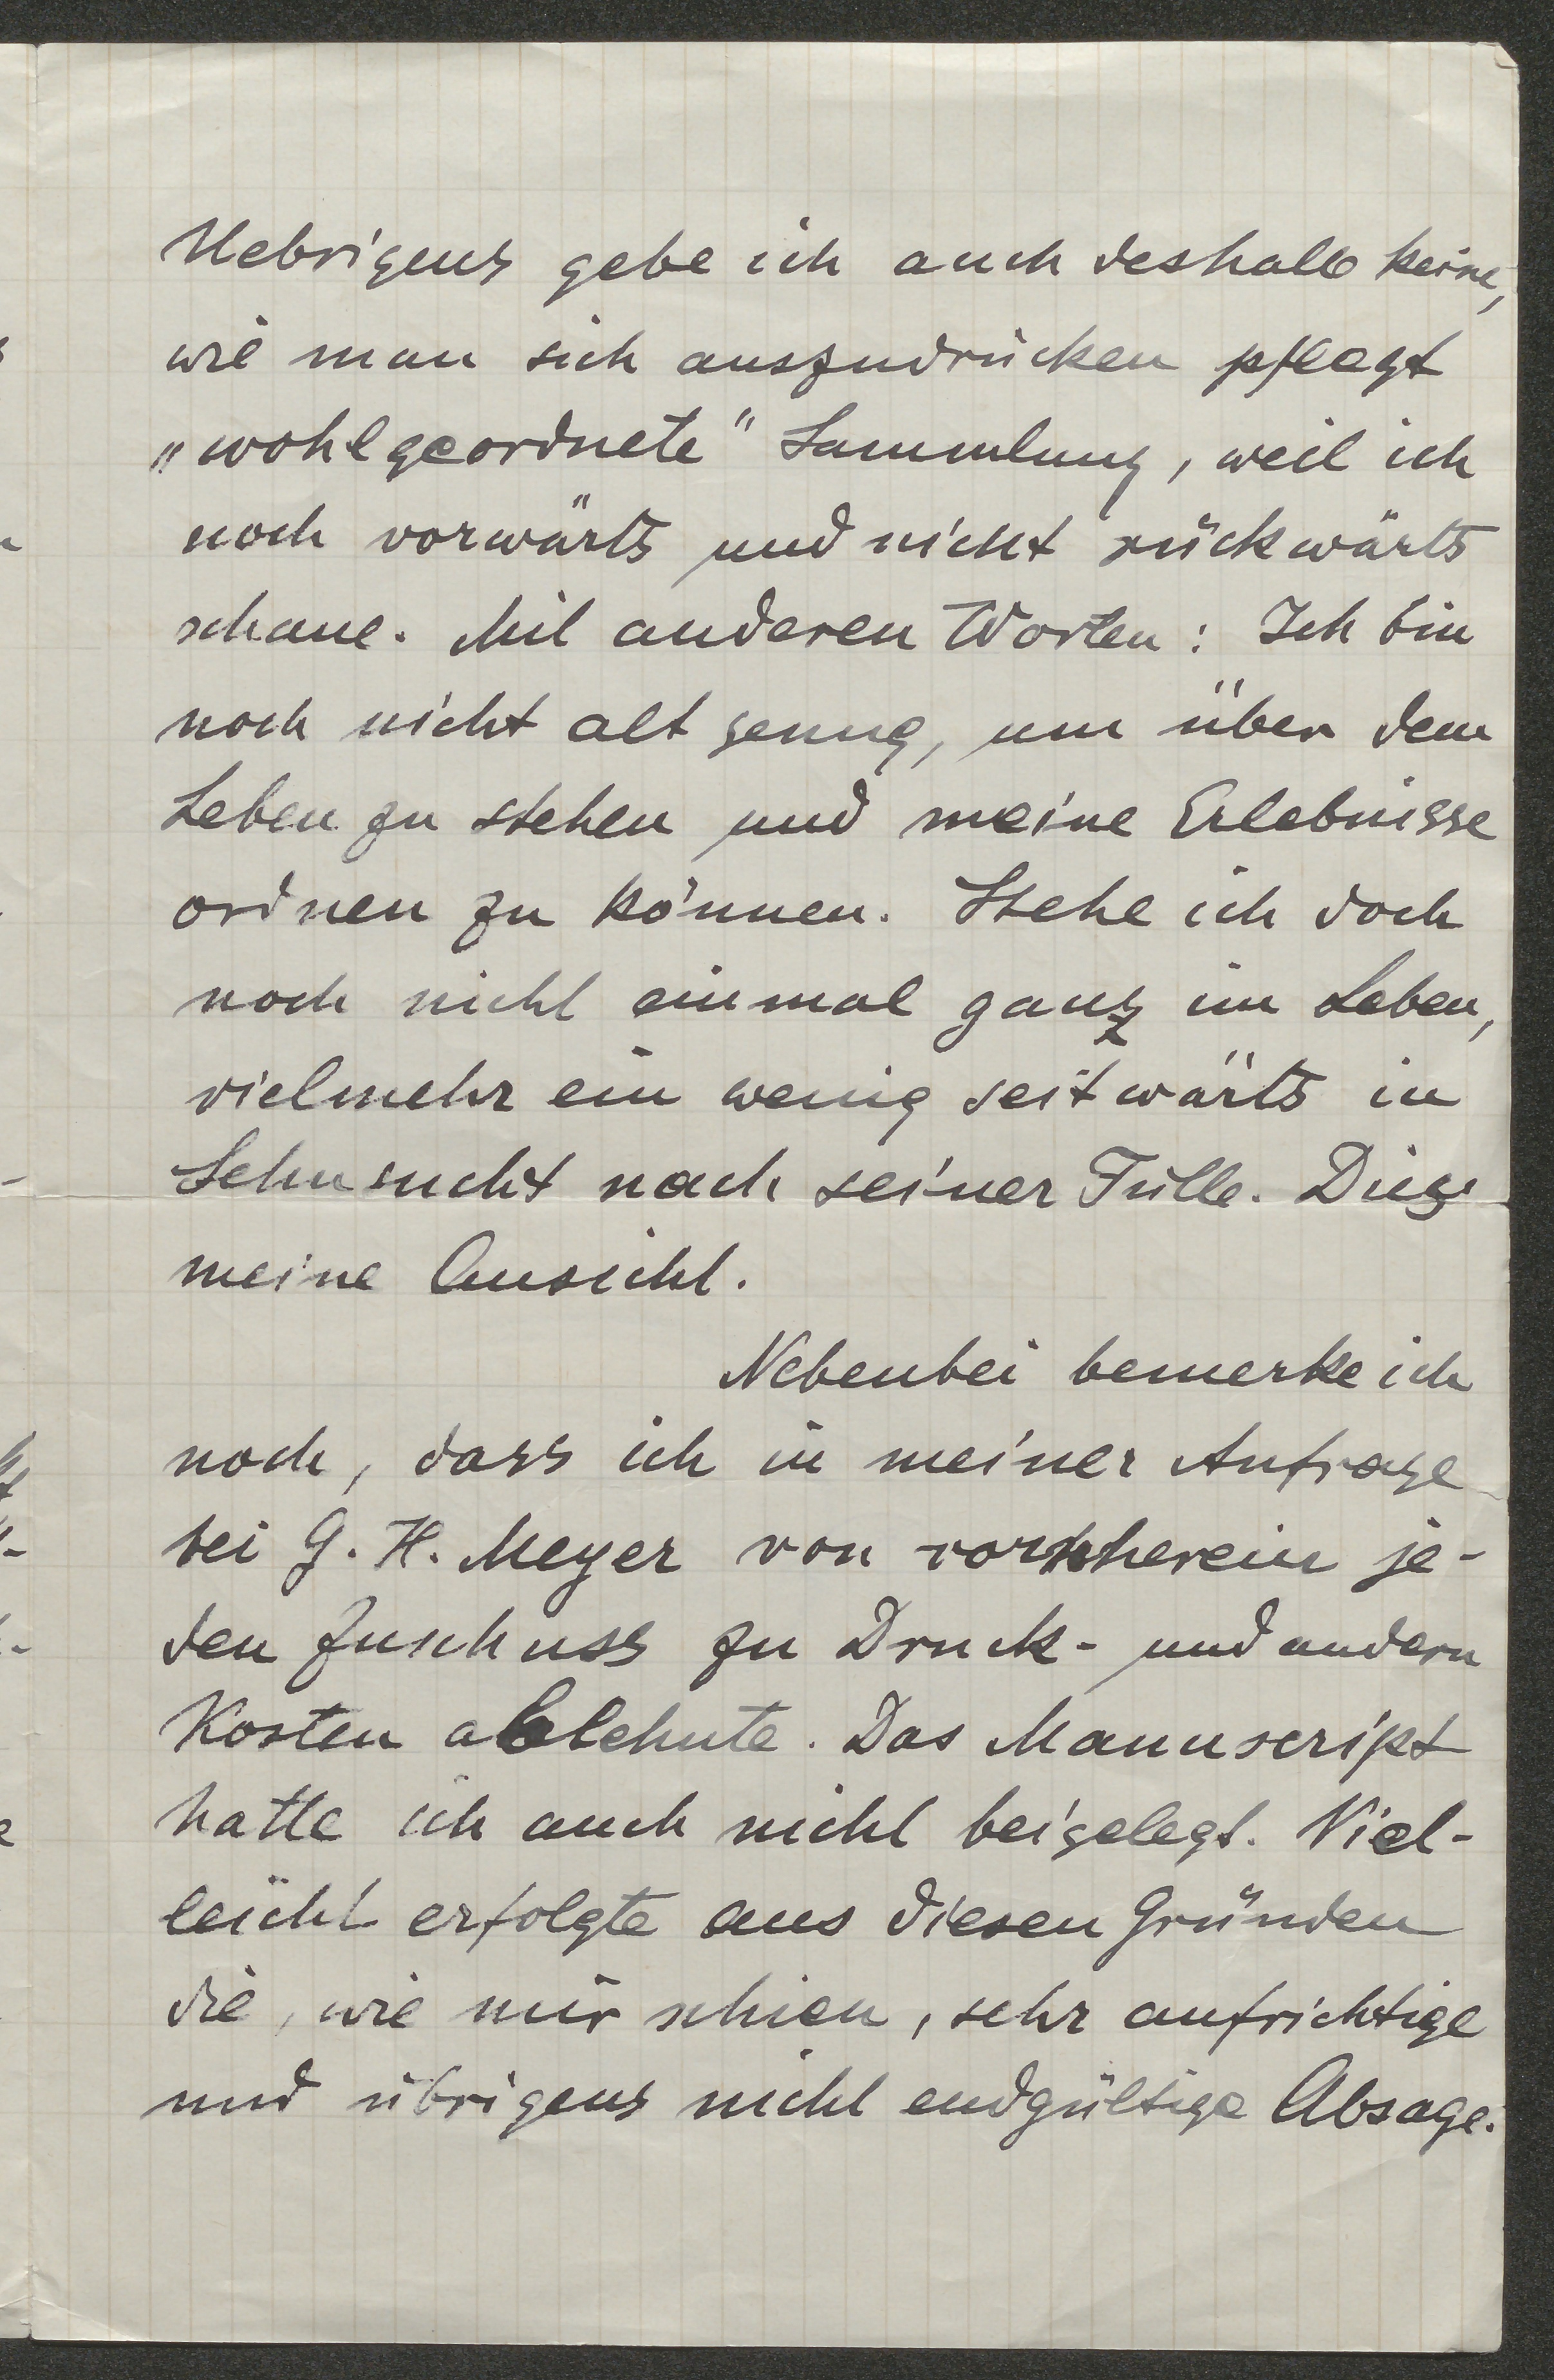 Uebrigens gebe ich auch deshalb keine,
wie man sich auszudrücken pflegt
„wohlgeordnete" Sammlung, weil ich
noch vorwärts und nicht rückwärts
schaue. Mit anderen Worten: Ich bin
noch nicht alt genug, um über dem
Leben zu stehen und meine Erlebnisse
ordnen zu können. Stehe ich doch
noch nicht einmal ganz im Leben,
vielmehr ein wenig seitwärts in
Sehnsucht nach seiner Fülle. Dies
meine Ansicht.
Nebenbei bemerke ich
noch, dass ich in meiner Anfrage
bei G. H. Meyer von vornherein je-
den Zuschuss zu Druck- und andern
Kosten ablehnte. Das Manuscript
hatte ich auch nicht beigelegt. Viel-
leicht erfolgte aus diesen Gründen
die, wie mir schien, sehr aufrichtige
und übrigens nicht endgültige Absage.